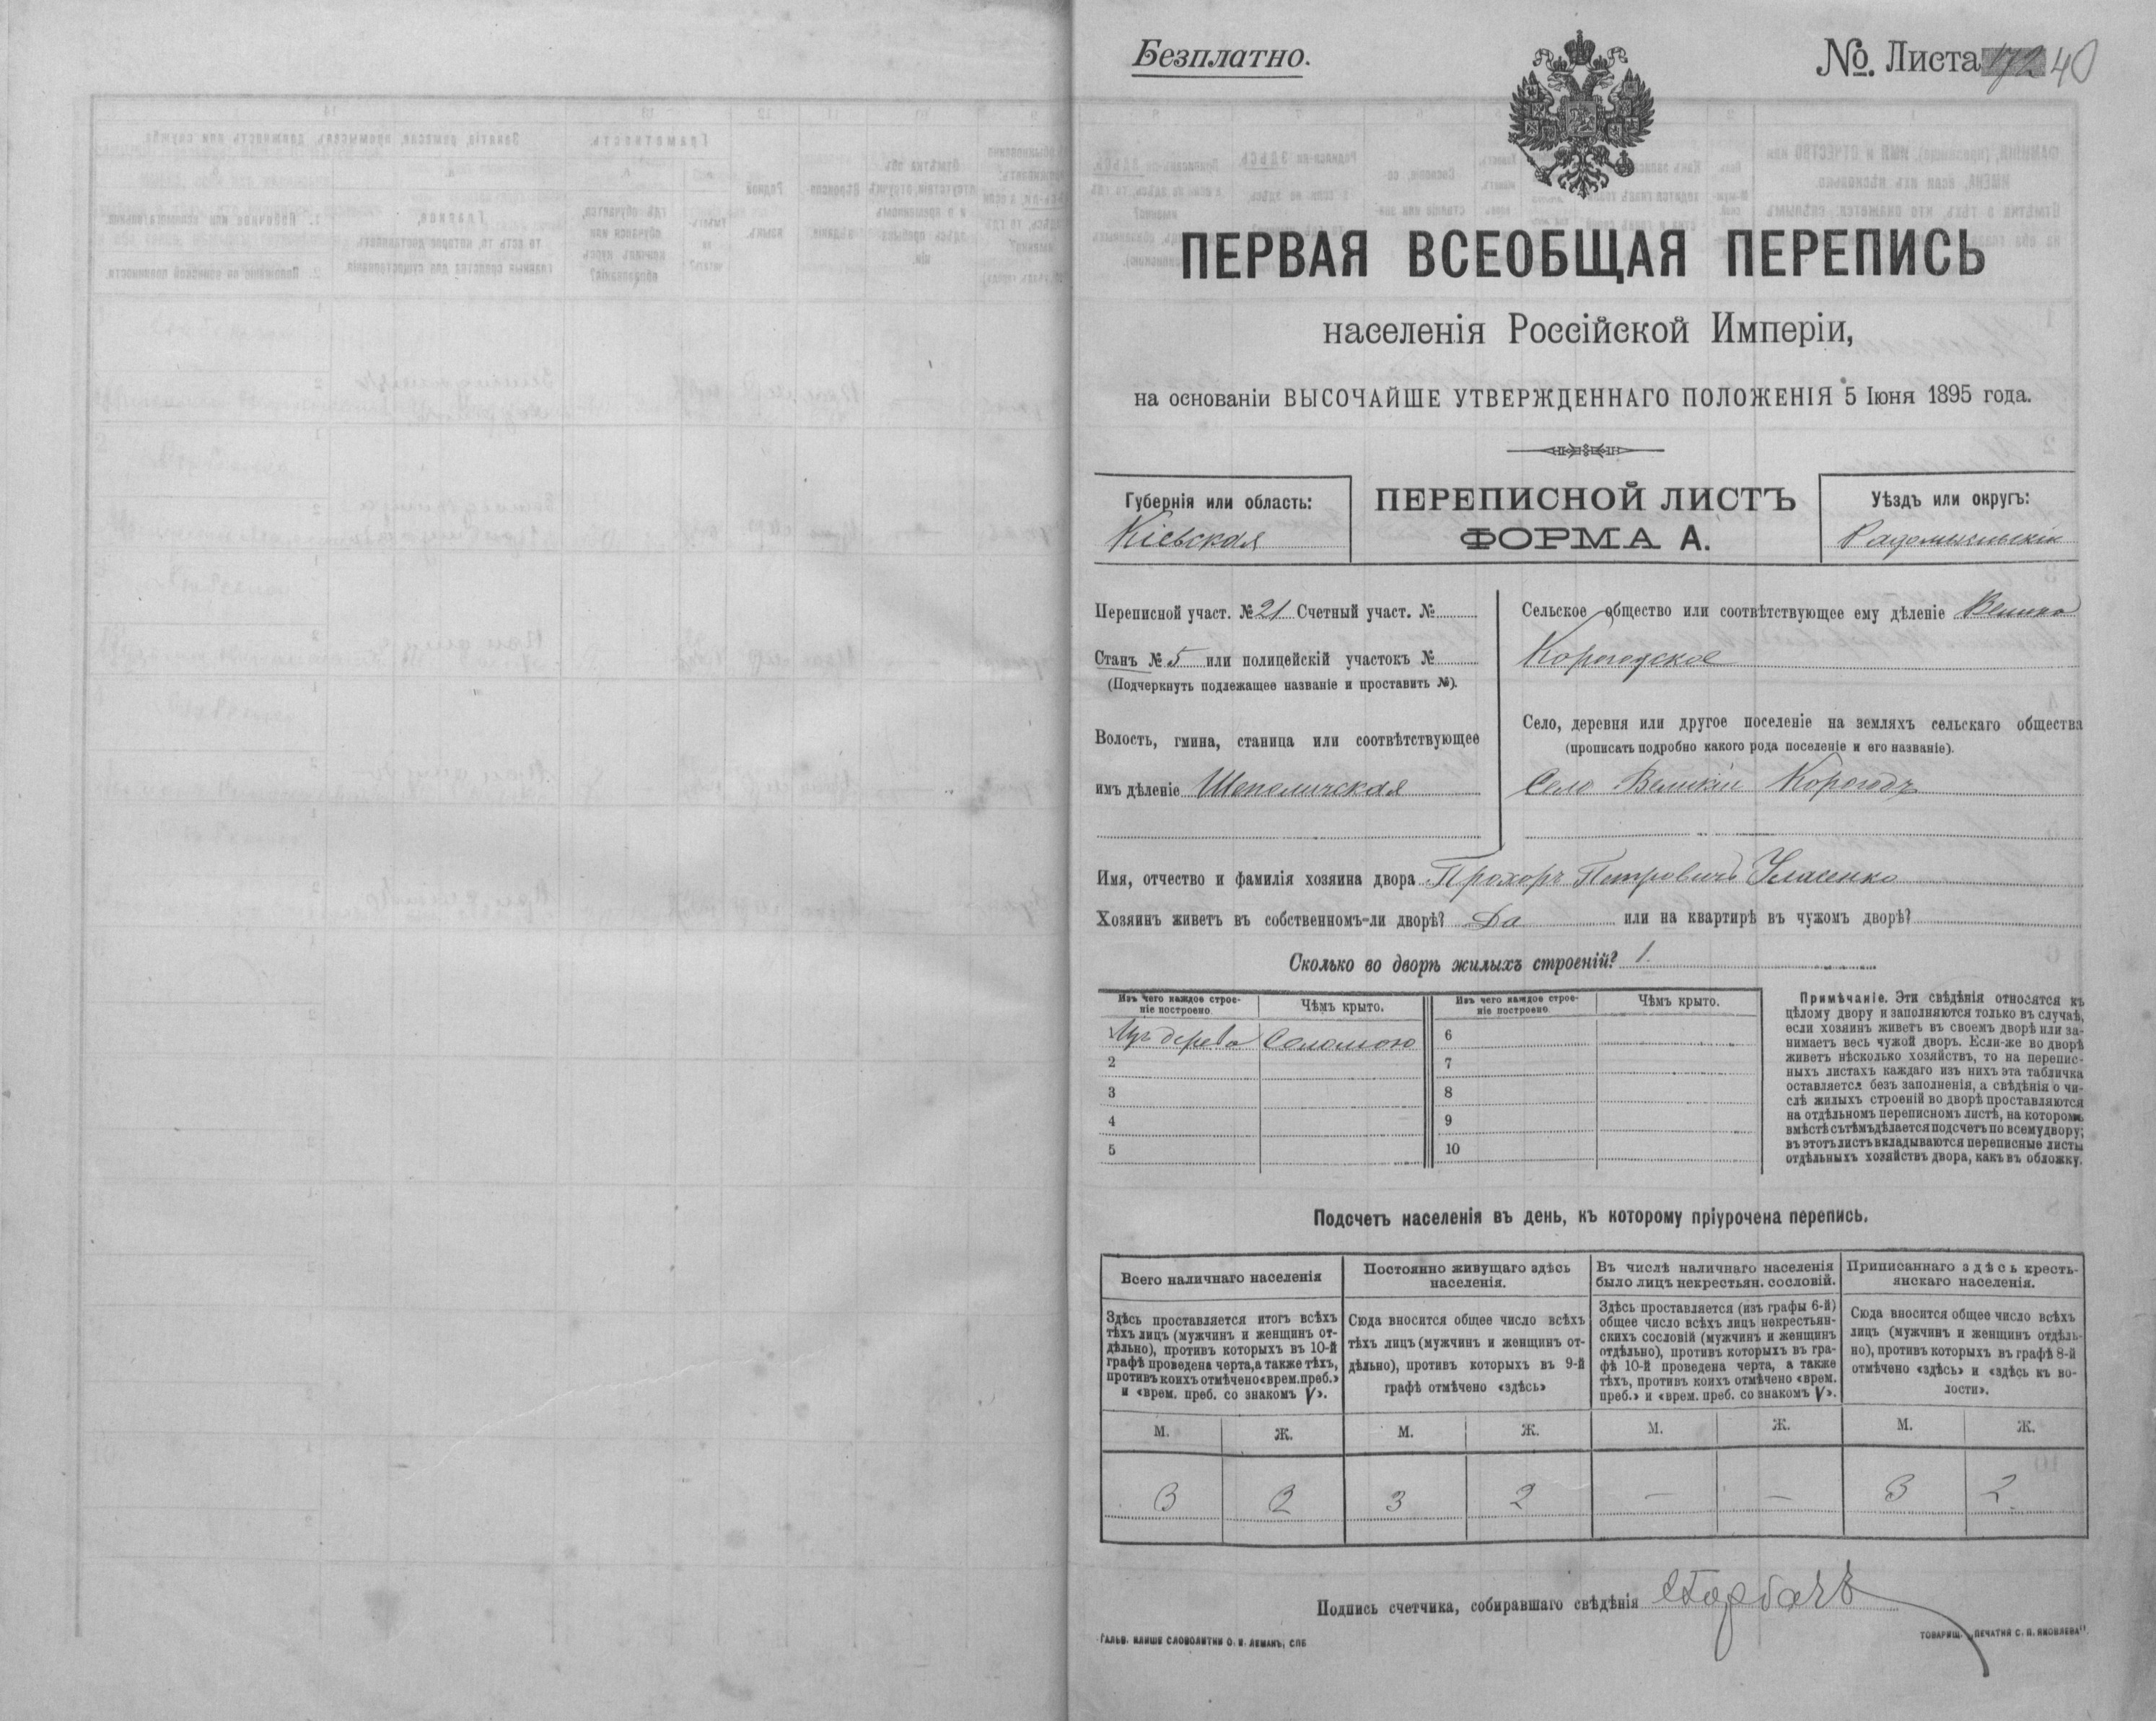 Безплатно.
№ Листа 40
ПЕРВАЯ ВСЕОБЩАЯ ПЕРЕПИСЬ
населенія Россійской Имперіи,
на основаніи ВЫСОЧАЙШЕ УТВЕРЖДЕННАГО ПОЛОЖЕНІЯ 5 Іюня 1895 года.
Губернія или область:
Кіевская
ПЕРЕПИСНОЙ ЛИСТЪ
ФОРМА А.
Уѣздъ или округъ:
Радомысльскій
Переписной участ. № 21 Счетный участ. №
Станъ № 5 или полицейскій участокъ №
(Подчеркнуть подлежащее названіе и проставить №).
Волость, гмина, станица или соотвѣтствующее
имъ дѣленіе Шепеличская
Сельское общество или соотвѣтствующее ему дѣленіе Велико
Корогодское
Село, деревня или другое поселеніе на земляхъ сельскаго общества
(прописать подробно какого рода поселеніе и его названіе).
Село Великій Корогодъ
Имя, отчество и фамилія хозяина двора Прохоръ Петровичъ Уласенко
Хозяинъ живетъ въ собственномъ-ли дворѣ? Да или на квартирѣ въ чужомъ дворѣ?
Сколько во дворѣ жилыхъ строеній? 1.
Изъ чего каждое строе-
ніе построено.
Чѣмъ крыто.
Изъ чего каждое строе-
ніе построено
Чѣмъ крыто.
Изъ дерева Соломою 6
2 7
3 8
4 9
5 10
Примѣчаніе. Эти свѣдѣнія относятся къ
цѣлому двору и заполняются только въ случаѣ,
если хозяинъ живетъ въ своемъ дворѣ или за-
нимаетъ весь чужой дворъ. Если-же во дворѣ
живетъ нѣсколько хозяйствъ, то на перепис-
ныхъ листахъ каждаго изъ нихъ эта табличка
оставляется безъ заполненія, а свѣдѣнія о чи-
слѣ жилыхъ строеній во дворѣ проставляются
на отдѣльномъ переписномъ листѣ, на которомъ
вмѣстѣ съ тѣмъ дѣлается подсчетъ по всему двору;
въ этотъ листъ вкладываются переписные листы
отдѣльныхъ хозяйствъ двора, какъ въ обложку.
Подсчетъ населенія въ день, къ которому пріурочена перепись.
Всего наличнаго населенія
Здѣсь проставляется итогъ всѣхъ
тѣхъ лицъ (мужчинъ и женщинъ от-
дѣльно), противъ которыхъ въ 10-й
графѣ проведена черта, а также тѣхъ,
противъ коихъ отмѣчено «врем. преб.»
и «врем. преб. со знакомъ V».
Постоянно живущаго здѣсь
населенія.
Сюда вносится общее число всѣхъ
тѣхъ лицъ (мужчинъ и женщинъ от-
дѣльно), противъ которыхъ въ 9-й
графѣ отмѣчено «здѣсь»
Въ числѣ наличнаго населенія
было лицъ некрестьян. сословій.
Здѣсь проставляется (изъ графы 6-й)
общее число всѣхъ лицъ некрестьян-
скихъ сословій (мужчинъ и женщинъ
отдѣльно), противъ которыхъ въ гра-
фѣ 10-й проведена черта, а также
тѣхъ, противъ коихъ отмѣчено «врем.
преб.» и «врем. преб. со знакомъ V».
Приписаннаго здѣсь кресть-
янскаго населенія.
Сюда вносится общее число всѣхъ
лицъ (мужчинъ и женщинъ отдѣль-
но), противъ которыхъ въ графѣ 8-й
отмѣчено «здѣсь» и «здѣсь къ во-
лости».
М. Ж. М. Ж. М. Ж. М. Ж.
3 2 3 2 — — 3 2
Подпись счетчика, собиравшаго свѣдѣнія
ГАЛЬВ. КЛИШЕ СЛОВОЛИТНИ О. И. ЛЕМАНЪ, СПБ
ТОВАРИЩ. „ПЕЧАТНЯ С. П. ЯКОВЛЕВА“.